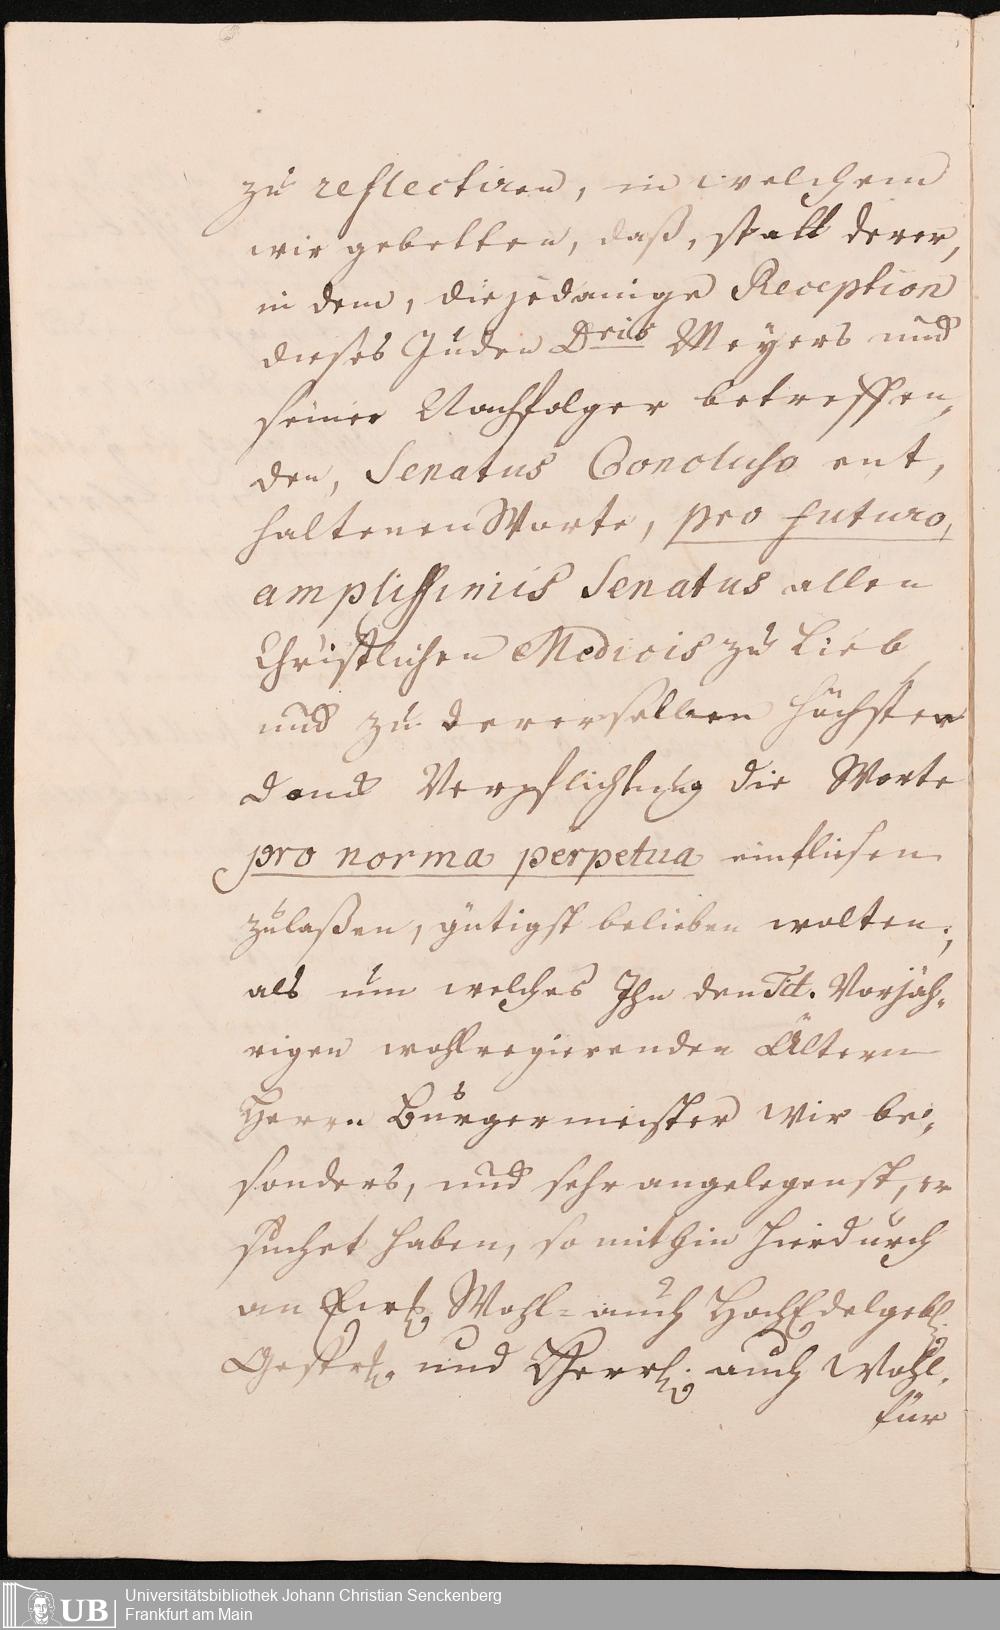 zu reflectiren, in welchem
wir gebetten, daß, statt derer,
in dem, die jedanige Reception
dieses Juden Dris Meyers und
seiner Nachfolger betreffen,
den, Senatus Concluso ent,
haltenen Worte, pro futuro,
amplissimis Senatus allen
Christlichen Medicis zu Lieb
und zu dererselben höchsten
Danck Verpflichtung die Worte
pro norma perpetua einfliesen
zulaßen, gütigst belieben wolten;
als um welches Ihn den Tit. Vorjäh,
rigen wohlregierenden Ältern
Herrn Burgermeister wir be,
sonders, und sehr angelegenst, er
suchet haben, so mithin hierdurch
an Wohl- auch HochEdelgebl.
Gestrl. und Herrl. auch Wohl,
für
Universitätsbibliothek Johann Christian Senckenberg
Frankfurt am Main
UB